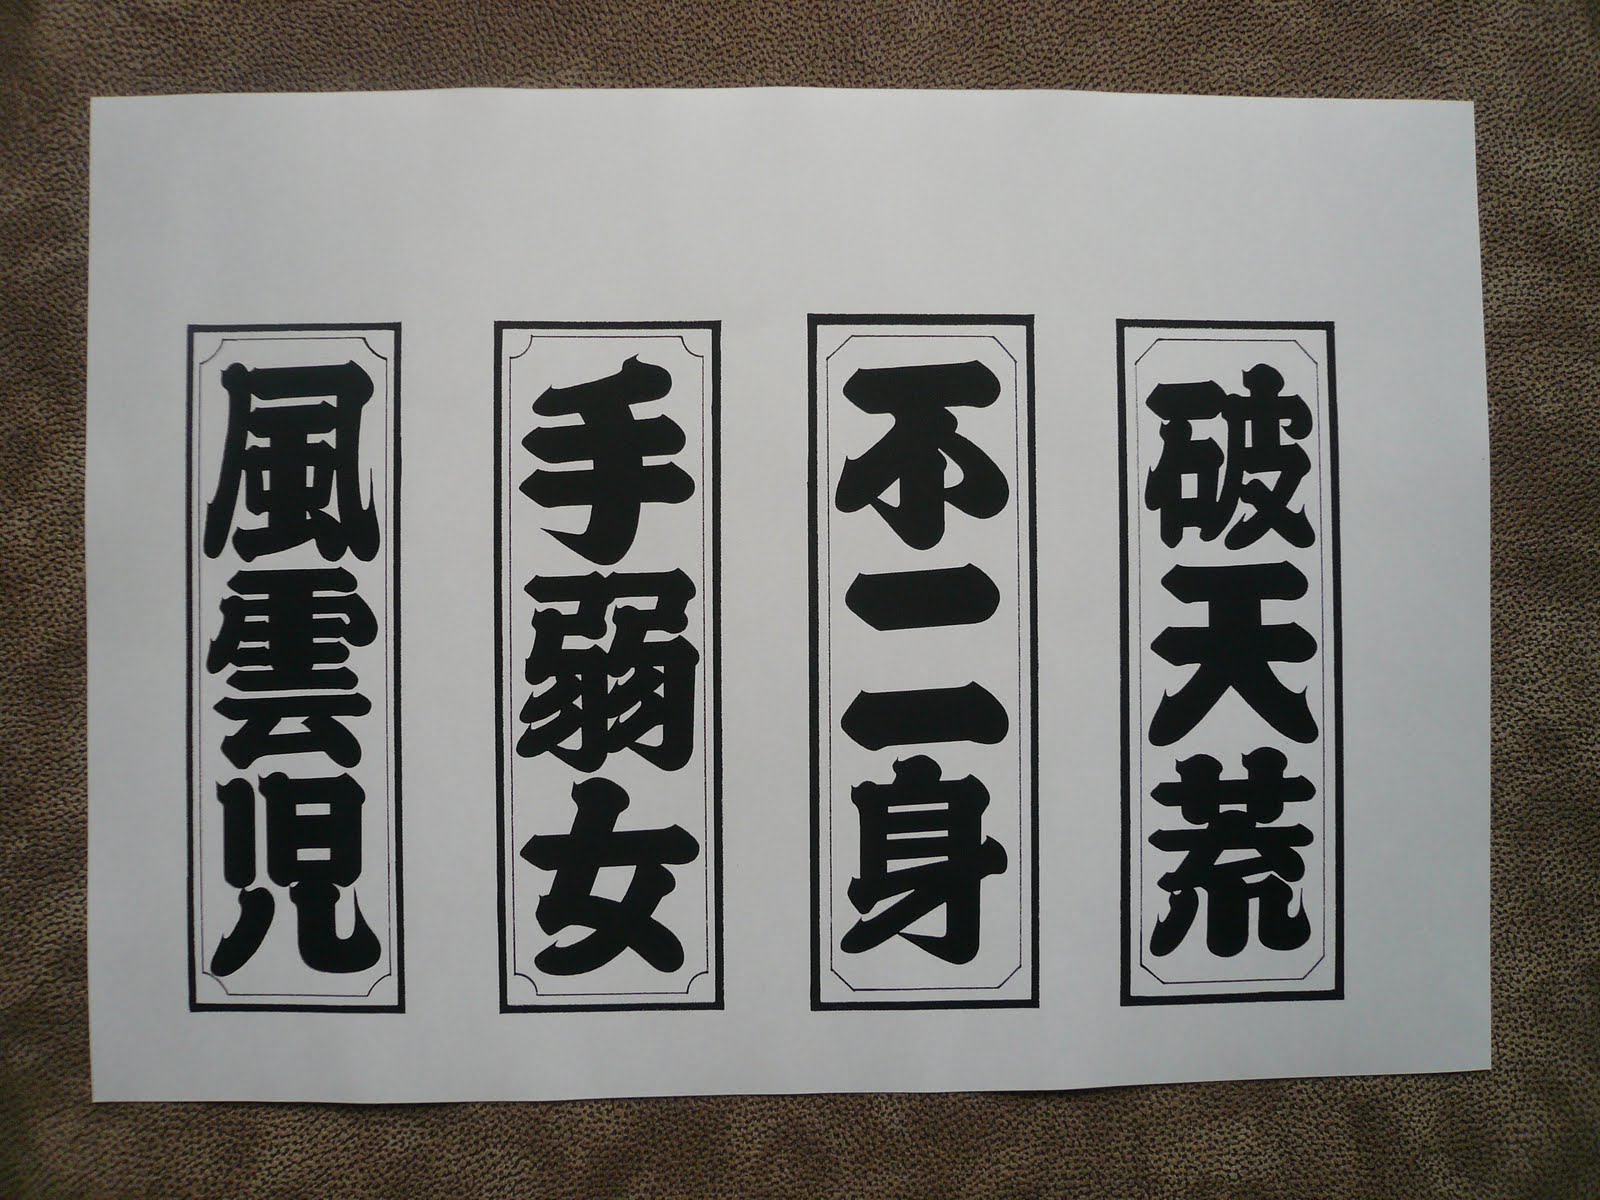 破天荒
不二一身
手弱女
風雲児